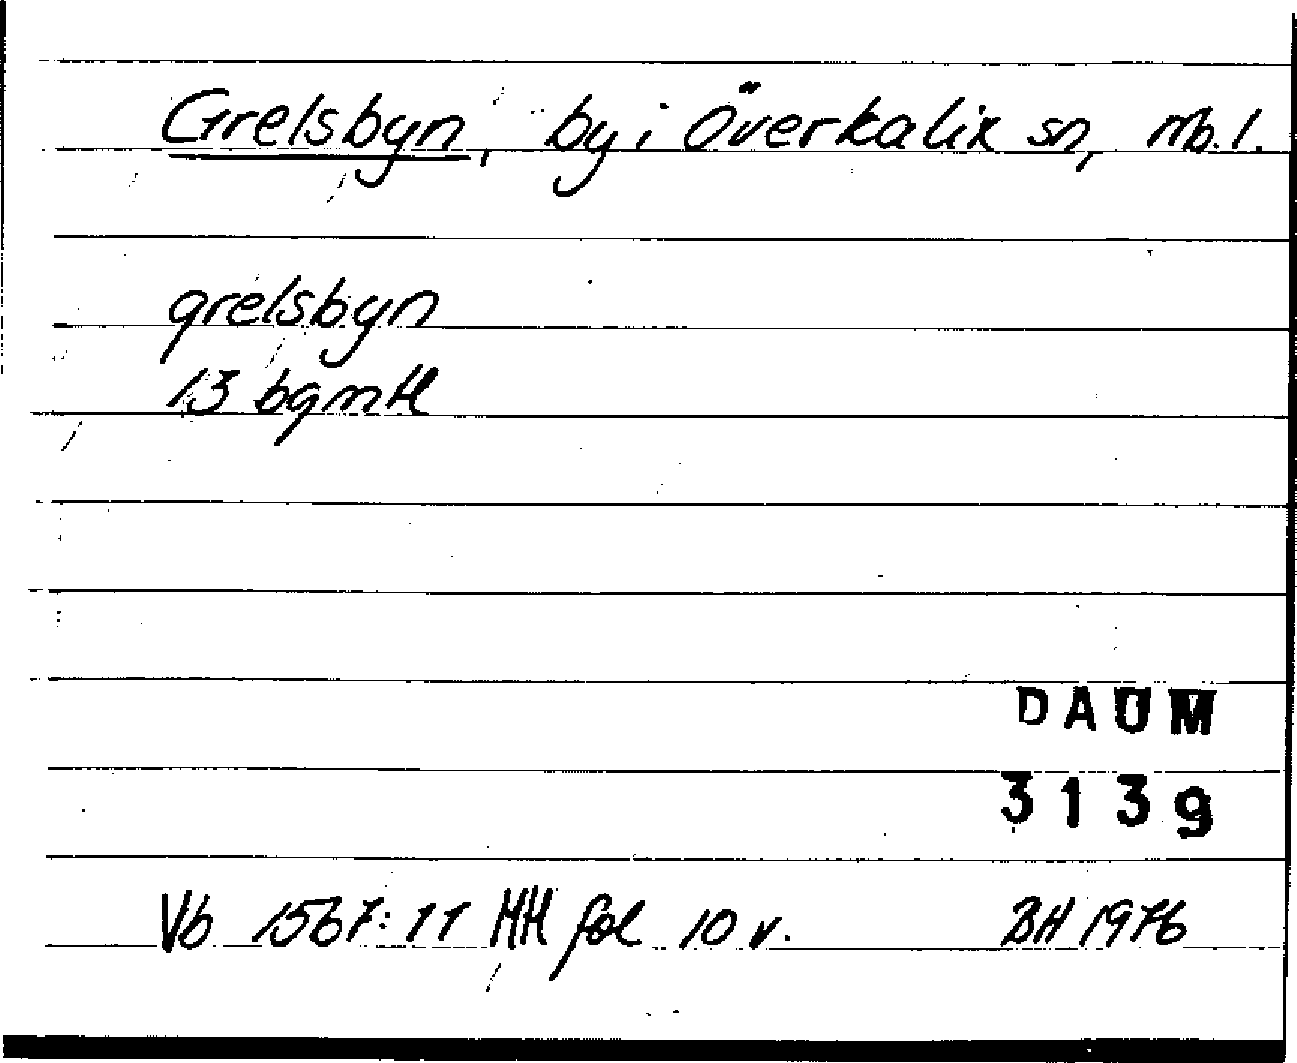 Grelsbyn, by i Överkalix sn, Nb. l.
grelsbyn
13 bgmtl
DAUM
3139
Vb 1567:11 HH fol 10 v. BH 1976